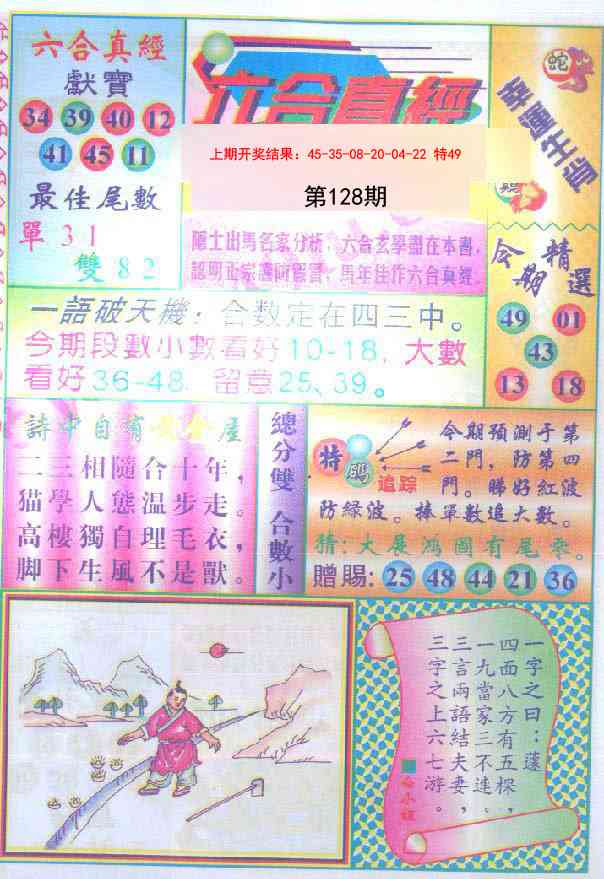 六合真經
獻寶
34 39 40 12
41 45 11
最佳尾數
單 3 1
雙 8 2
六合真經
上期开奖结果：45-35-08-20-04-22 特49
第128期
蛇
幸運生肖
今期精選
49 01
43
13 18
一語破天機：合数定在四三中。
今期段數小數看好10-18，大數
看好36-48，留意25、39。
詩中自有黃金屋
二三相隨合十年，
猫學人態温步走。
高樓獨自理毛衣，
脚下生風不是獸。
總分雙 合數小
特
追踪
今期预測于第
二門，防第四
門。睇好紅波
防緑波。捧單數追大數。
猜：大展鸿圖有尾零。
贈賜：25 48 44 21 36
一字之曰：蓬
四面八方有五棵，
一九當家三不連、
三言兩語結夫妻，
三字之上六七游。